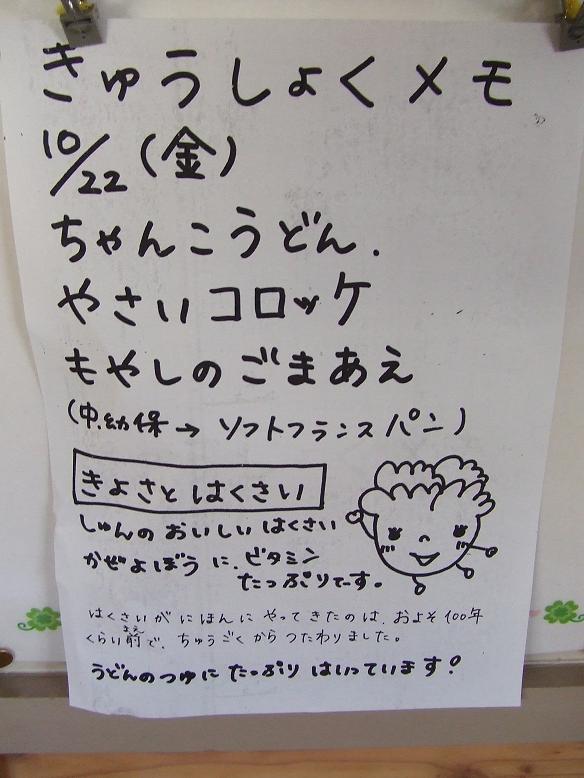 きゅうしょくメモ
10/22(金)
ちゃんこうどん.
やさいコロッケ
もやしのごまあえ
(中.幼保→ソフトフランスパン)
きよさと はくさい
しゅんの おいしい はくさい
かぜよぼうに.ビタミン
たっぷりでーす。
はくさいが にほんに やってきたのは、およそ100年
くらい前で、ちゅうごくから つたわりました。
まえ
うどんのつゆに たっぷり はいっています!